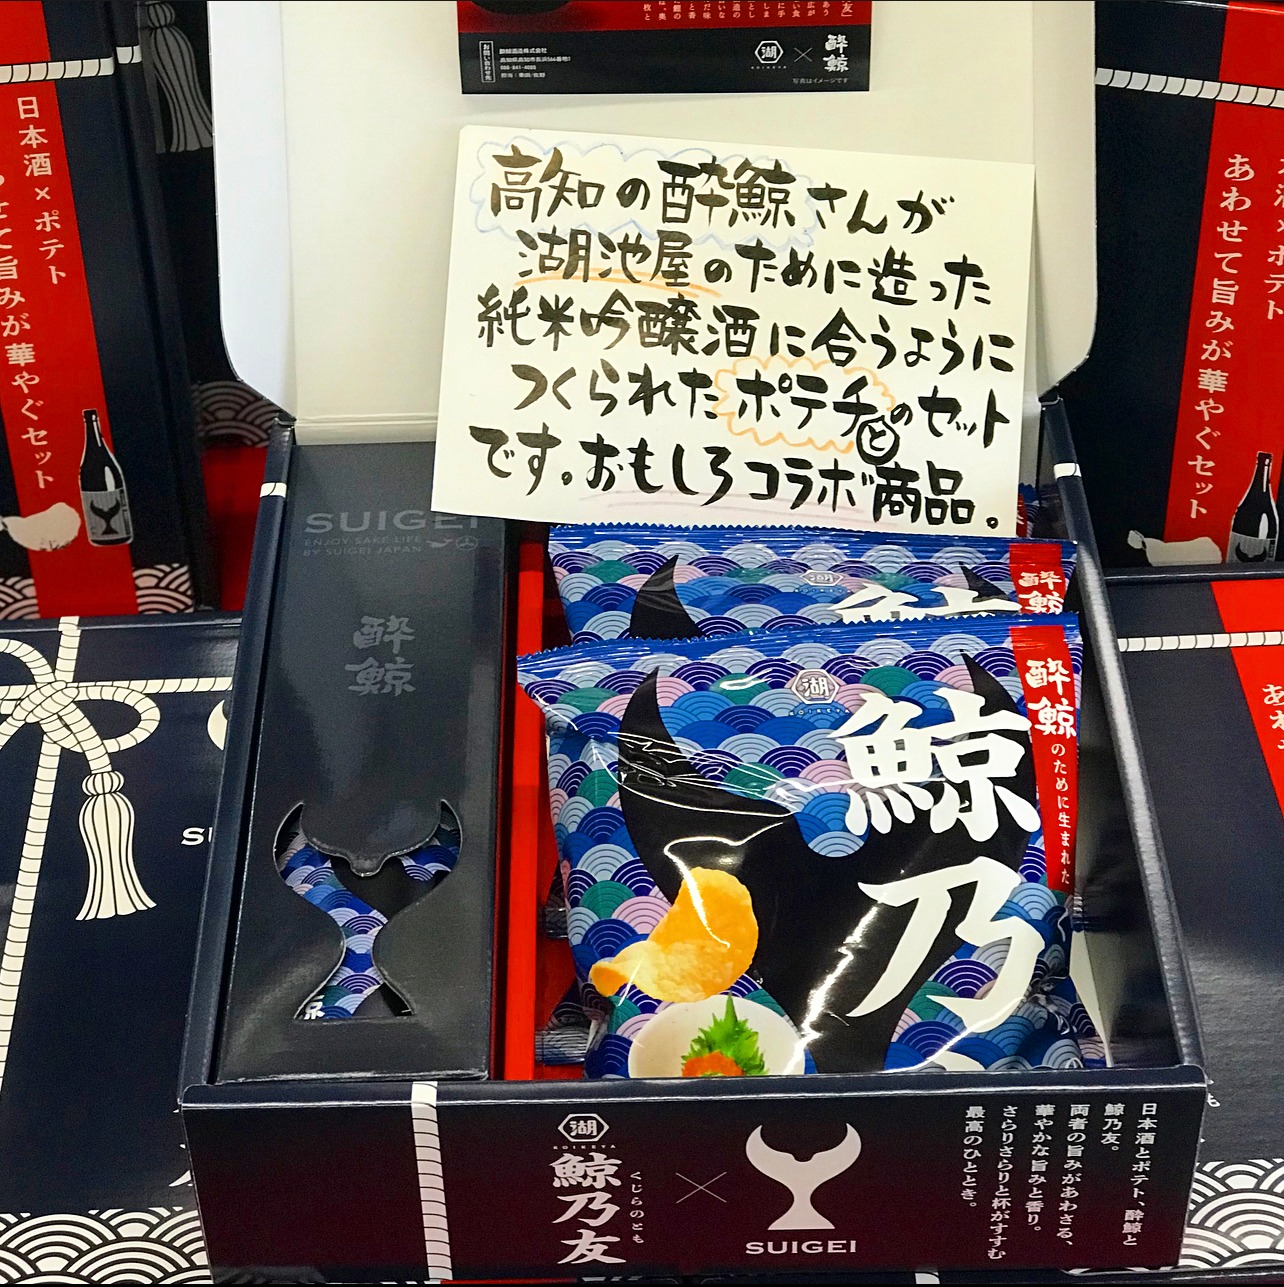 お問い合わせ先
酔鯨酒造株式会社
湖
KOIKEYA
×
酔鯨
写真はイメージです
高知の酔鯨さんが
湖池屋のために造った
純米吟醸酒に合うように
つくられたポテチとのセット
です。おもしろコラボ商品。
日本酒×ポテト
あわせて旨みが華やぐセット
SUIGEI
ENJOY SAKE LIFE
BY SUIGEI JAPAN
酔鯨
湖
酔鯨
湖
KOIKEYA
鯨乃
酔鯨のために生まれた
湖
KOIKEYA
鯨乃友
くじらのとも
×
SUIGEI
日本酒とポテト、酔鯨と
鯨乃友。
両者の旨みがあわさる、
華やかな旨みと香り。
さらりさらりと杯がすすむ
最高のひととき。
あわせて旨みが華やぐセット